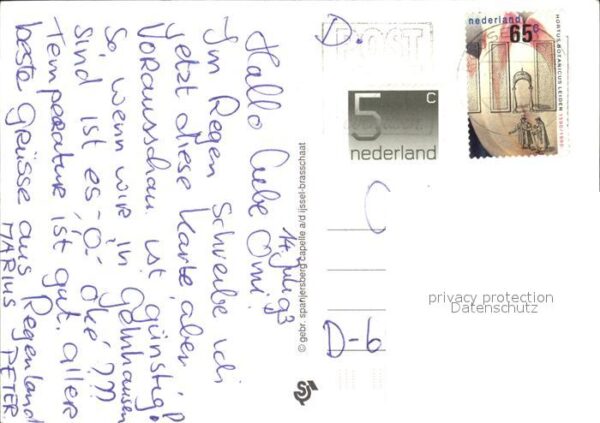 Hallo liebe Omi!
14 Juli 93
Im Regen schreibe ich
jetzt diese Karte, aber
Vorausschau ist günstig!
So wenn wir in Gelnhausen
sind ist es -o- oké ???
Temperatur ist gut. allerbeste Grüsse aus Regenland
MARIUS PETER
© gebr. spanjersberg capelle a/d ijssel-brasschaat
D.
5 c
nederland
nederland 65 c
HORTUS BOTANICUS LEIDEN 1590/1990
D-6
privacy protection
Datenschutz